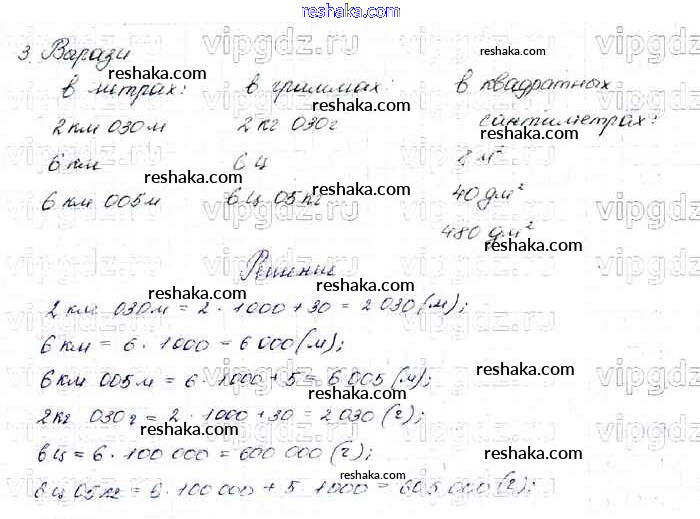 reshaka.com
3. Вырази
в метрах: в граммах: в квадратных
сантиметрах:
2 км 030 м 2 кг 030 г 8 м²
6 км 6 ц 40 дм²
6 км 005 м 6 ц 05 кг 480 дм²
Решение
2 км 030 м = 2 · 1000 + 30 = 2 030 (м);
6 км = 6 · 1000 = 6 000 (м);
6 км 005 м = 6 · 1000 + 5 = 6 005 (м);
2 кг 030 г = 2 · 1000 + 30 = 2 030 (г);
6 ц = 6 · 100 000 = 600 000 (г);
6 ц 05 кг = 6 · 100 000 + 5 · 1000 = 605 000 (г);
vipgdz.ru